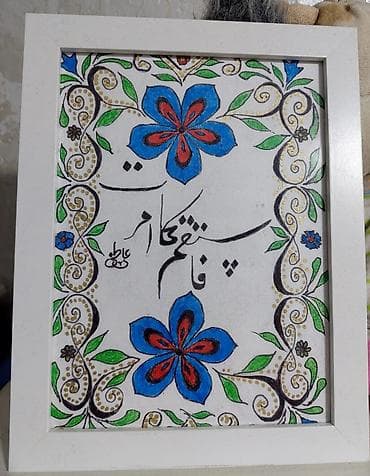 فاستقم کما امرت